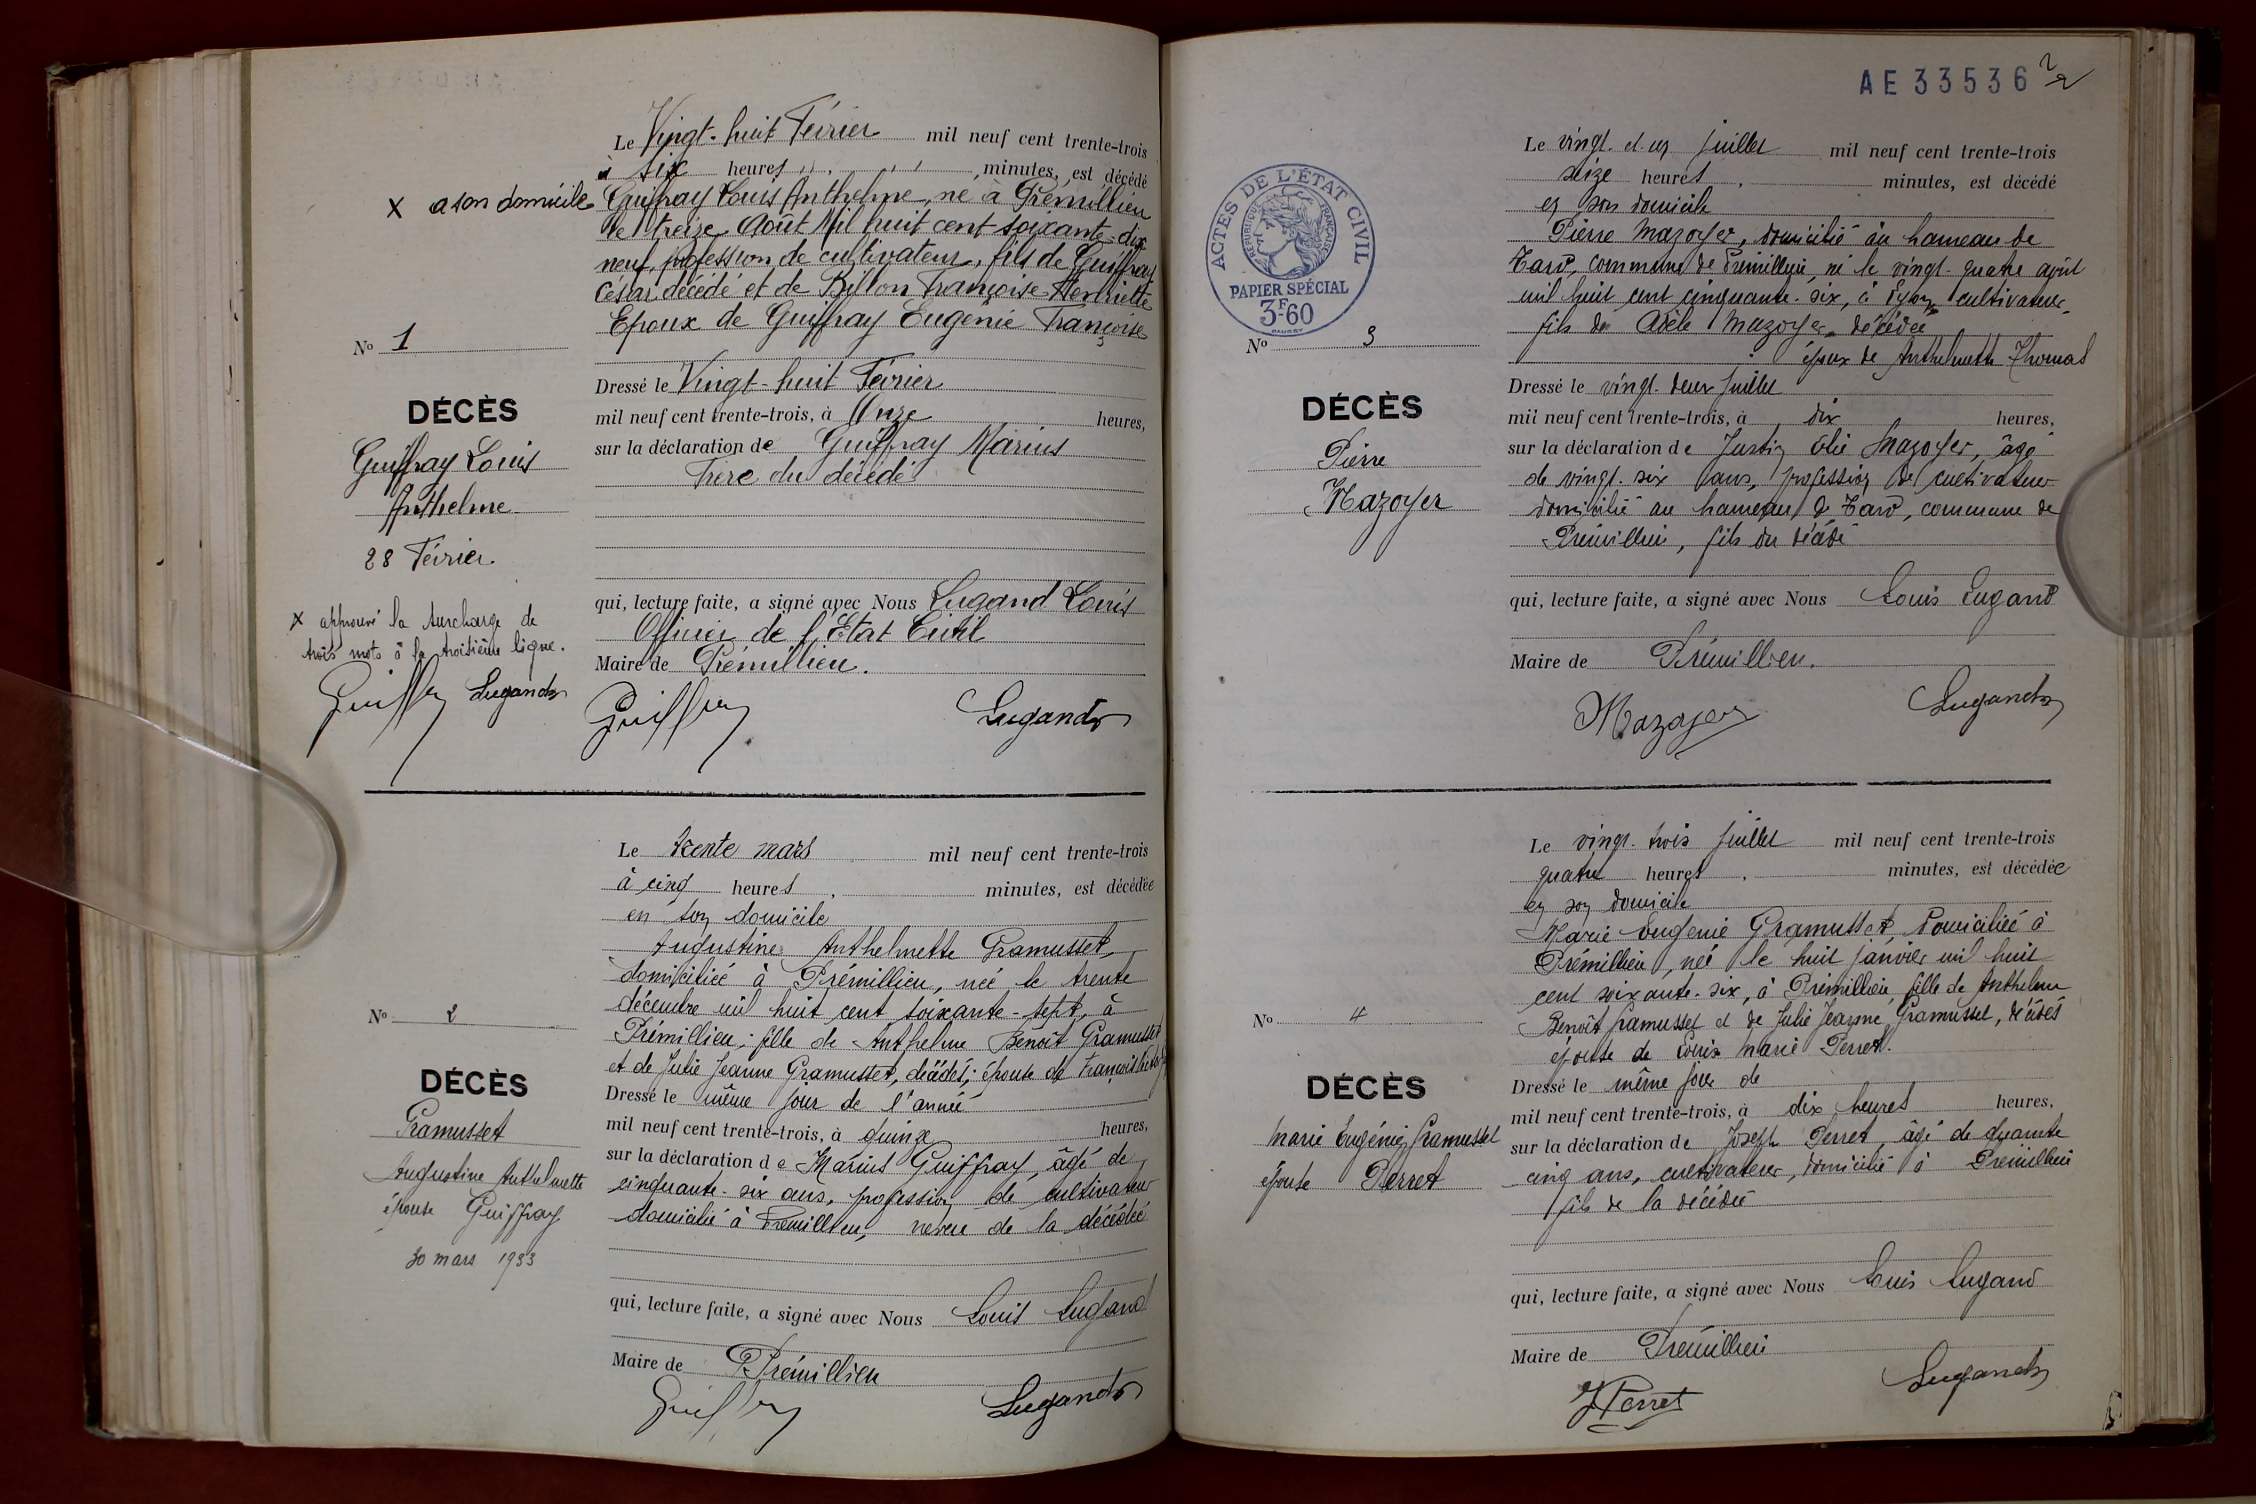 Le Vingt-huit Février mil neuf cent trente-trois
à six heures minutes, est décédé
X a son domicile Guiffray Louis Anthelme, né à Prémillieu
le treize Août Mil huit cent soixante-dix
neuf, profession de cultivateur, fils de Guiffray
César décédé et de Billon Françoise Henriette
Epoux de Guiffray Eugénie Françoise
No 1
Dressé le Vingt-huit Février
DÉCÈS
mil neuf cent trente-trois, à Onze heures,
sur la déclaration de Guiffray Marius
Guiffray Louis
Frère du décédé
Anthelme
28 Février.
qui, lecture faite, a signé avec Nous Lugand Louis
X approuvé la surcharge de
Officier de l'Etat Civil
trois mots à la troisième ligne.
Maire de Prémillieu.
Guiffray Lugand
Guiffray Lugand
Le trente mars mil neuf cent trente-trois
à cinq heures minutes, est décédée
en son domicile
Augustine Anthelmette Gramusset,
domiciliée à Prémillieu, née le trente
décembre mil huit cent soixante-sept, à
No 2
Prémillieu; fille de Anthelme Benoît Gramusset
et de Julie Jeanne Gramusset, décédés; épouse de François
DÉCÈS
Dressé le même jour de l'année
Gramusset
mil neuf cent trente-trois, à quinze heures,
Augustine Anthelmette
sur la déclaration de Marius Guiffray, âgé de
épouse Guiffray
cinquante-six ans, profession de cultivateur
30 mars 1933
domicilié à Prémillieu, neveu de la décédée
qui, lecture faite, a signé avec Nous Louis Lugand
Maire de Prémillieu
Guiffray Lugand
AE33536
2
Le vingt-et-un juillet mil neuf cent trente-trois
seize heures minutes, est décédé
en son domicile
Pierre Mazoyer, domicilié au hameau de
commune de Prémillieu, né le vingt-quatre août
mil huit cent cinquante-six, à Lyon, cultivateur,
fils de Adèle Mazoyer décédée
époux de Anthelmette Thomas
ACTES DE L'ÉTAT CIVIL
RÉPUBLIQUE FRANÇAISE
PAPIER SPÉCIAL
3F-60
No 3
DÉCÈS
Pierre
Mazoyer
Dressé le vingt-deux juillet
mil neuf cent trente-trois, à dix heures,
sur la déclaration de Justin Elie Mazoyer, âgé
de vingt-six ans, profession de cultivateur
domicilié au hameau de commune de
Prémillieu, fils du décédé
qui, lecture faite, a signé avec Nous Louis Lugand
Maire de Prémillieu.
Mazoyer Lugand
Le vingt-trois juillet mil neuf cent trente-trois
quatre heures minutes, est décédée
en son domicile
Marie Eugénie Gramusset, domiciliée à
Prémillieu, née le huit janvier mil huit
cent soixante-six, à Prémillieu, fille de Anthelme
Benoît Gramusset et de Julie Jeanne Gramusset, décédés
épouse de Louis Marie Perret.
No 4
DÉCÈS
Marie Eugénie Gramusset
épouse Perret
Dressé le même jour de
mil neuf cent trente-trois, à dix heures heures,
sur la déclaration de Joseph Perret, âgé de quarante
cinq ans, cultivateur, domicilié à Prémillieu
fils de la décédée
qui, lecture faite, a signé avec Nous Louis Lugand
Maire de Prémillieu
J Perret Lugand